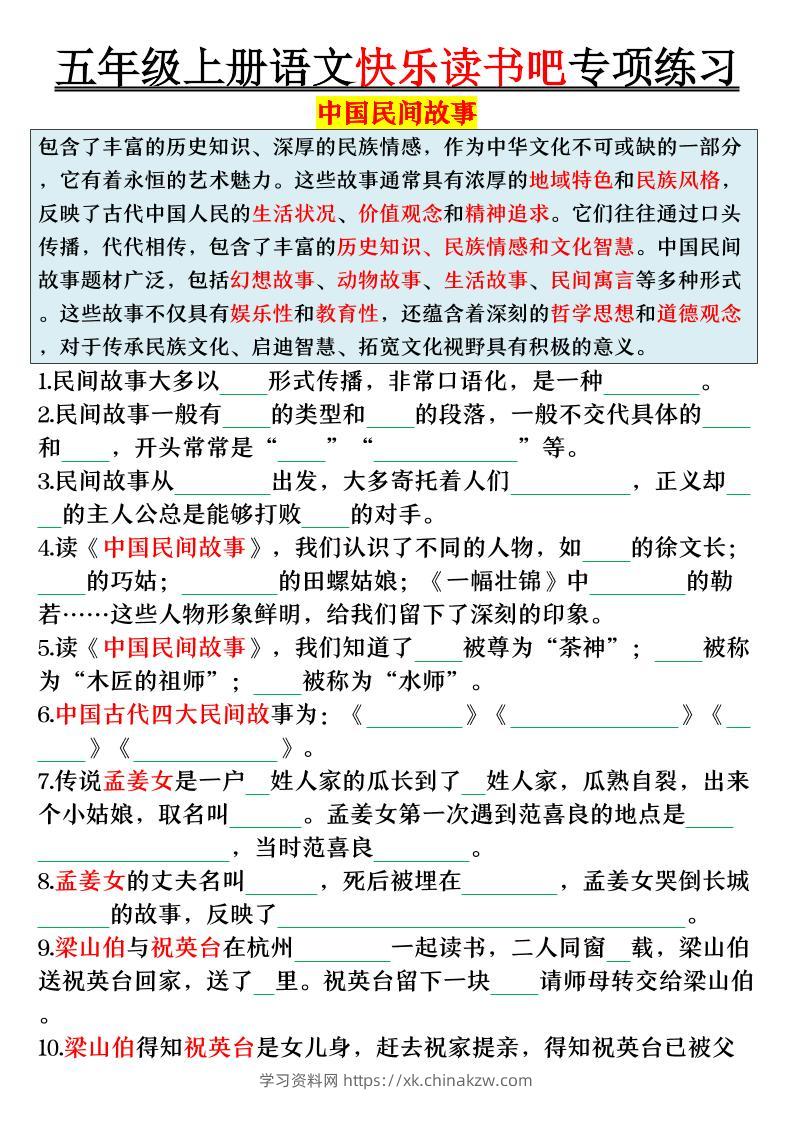 五年级上册语文快乐读书吧专项练习
中国民间故事
包含了丰富的历史知识、深厚的民族情感，作为中华文化不可或缺的一部分
，它有着永恒的艺术魅力。这些故事通常具有浓厚的地域特色和民族风格，
反映了古代中国人民的生活状况、价值观念和精神追求。它们往往通过口头
传播，代代相传，包含了丰富的历史知识、民族情感和文化智慧。中国民间
故事题材广泛，包括幻想故事、动物故事、生活故事、民间寓言等多种形式
。这些故事不仅具有娱乐性和教育性，还蕴含着深刻的哲学思想和道德观念
，对于传承民族文化、启迪智慧、拓宽文化视野具有积极的意义。
1.民间故事大多以____形式传播，非常口语化，是一种________。
2.民间故事一般有____的类型和____的段落，一般不交代具体的____
和____，开头常常是“____”“____________”等。
3.民间故事从________出发，大多寄托着人们__________，正义却__
__的主人公总是能够打败____的对手。
4.读《中国民间故事》，我们认识了不同的人物，如____的徐文长；
____的巧姑；________的田螺姑娘；《一幅壮锦》中________的勒
若……这些人物形象鲜明，给我们留下了深刻的印象。
5.读《中国民间故事》，我们知道了____被尊为“茶神”；____被称
为“木匠的祖师”；____被称为“水师”。
6.中国古代四大民间故事为：《________》《______________》《__
____》《____________》。
7.传说孟姜女是一户__姓人家的瓜长到了__姓人家，瓜熟自裂，出来
个小姑娘，取名叫______。孟姜女第一次遇到范喜良的地点是____
________________，当时范喜良________。
8.孟姜女的丈夫名叫______，死后被埋在________，孟姜女哭倒长城
______的故事，反映了__________________________________。
9.梁山伯与祝英台在杭州________一起读书，二人同窗__载，梁山伯
送祝英台回家，送了__里。祝英台留下一块____请师母转交给梁山伯
。
10.梁山伯得知祝英台是女儿身，赶去祝家提亲，得知祝英台已被父
学习资料网 https://xk.chinakzw.com